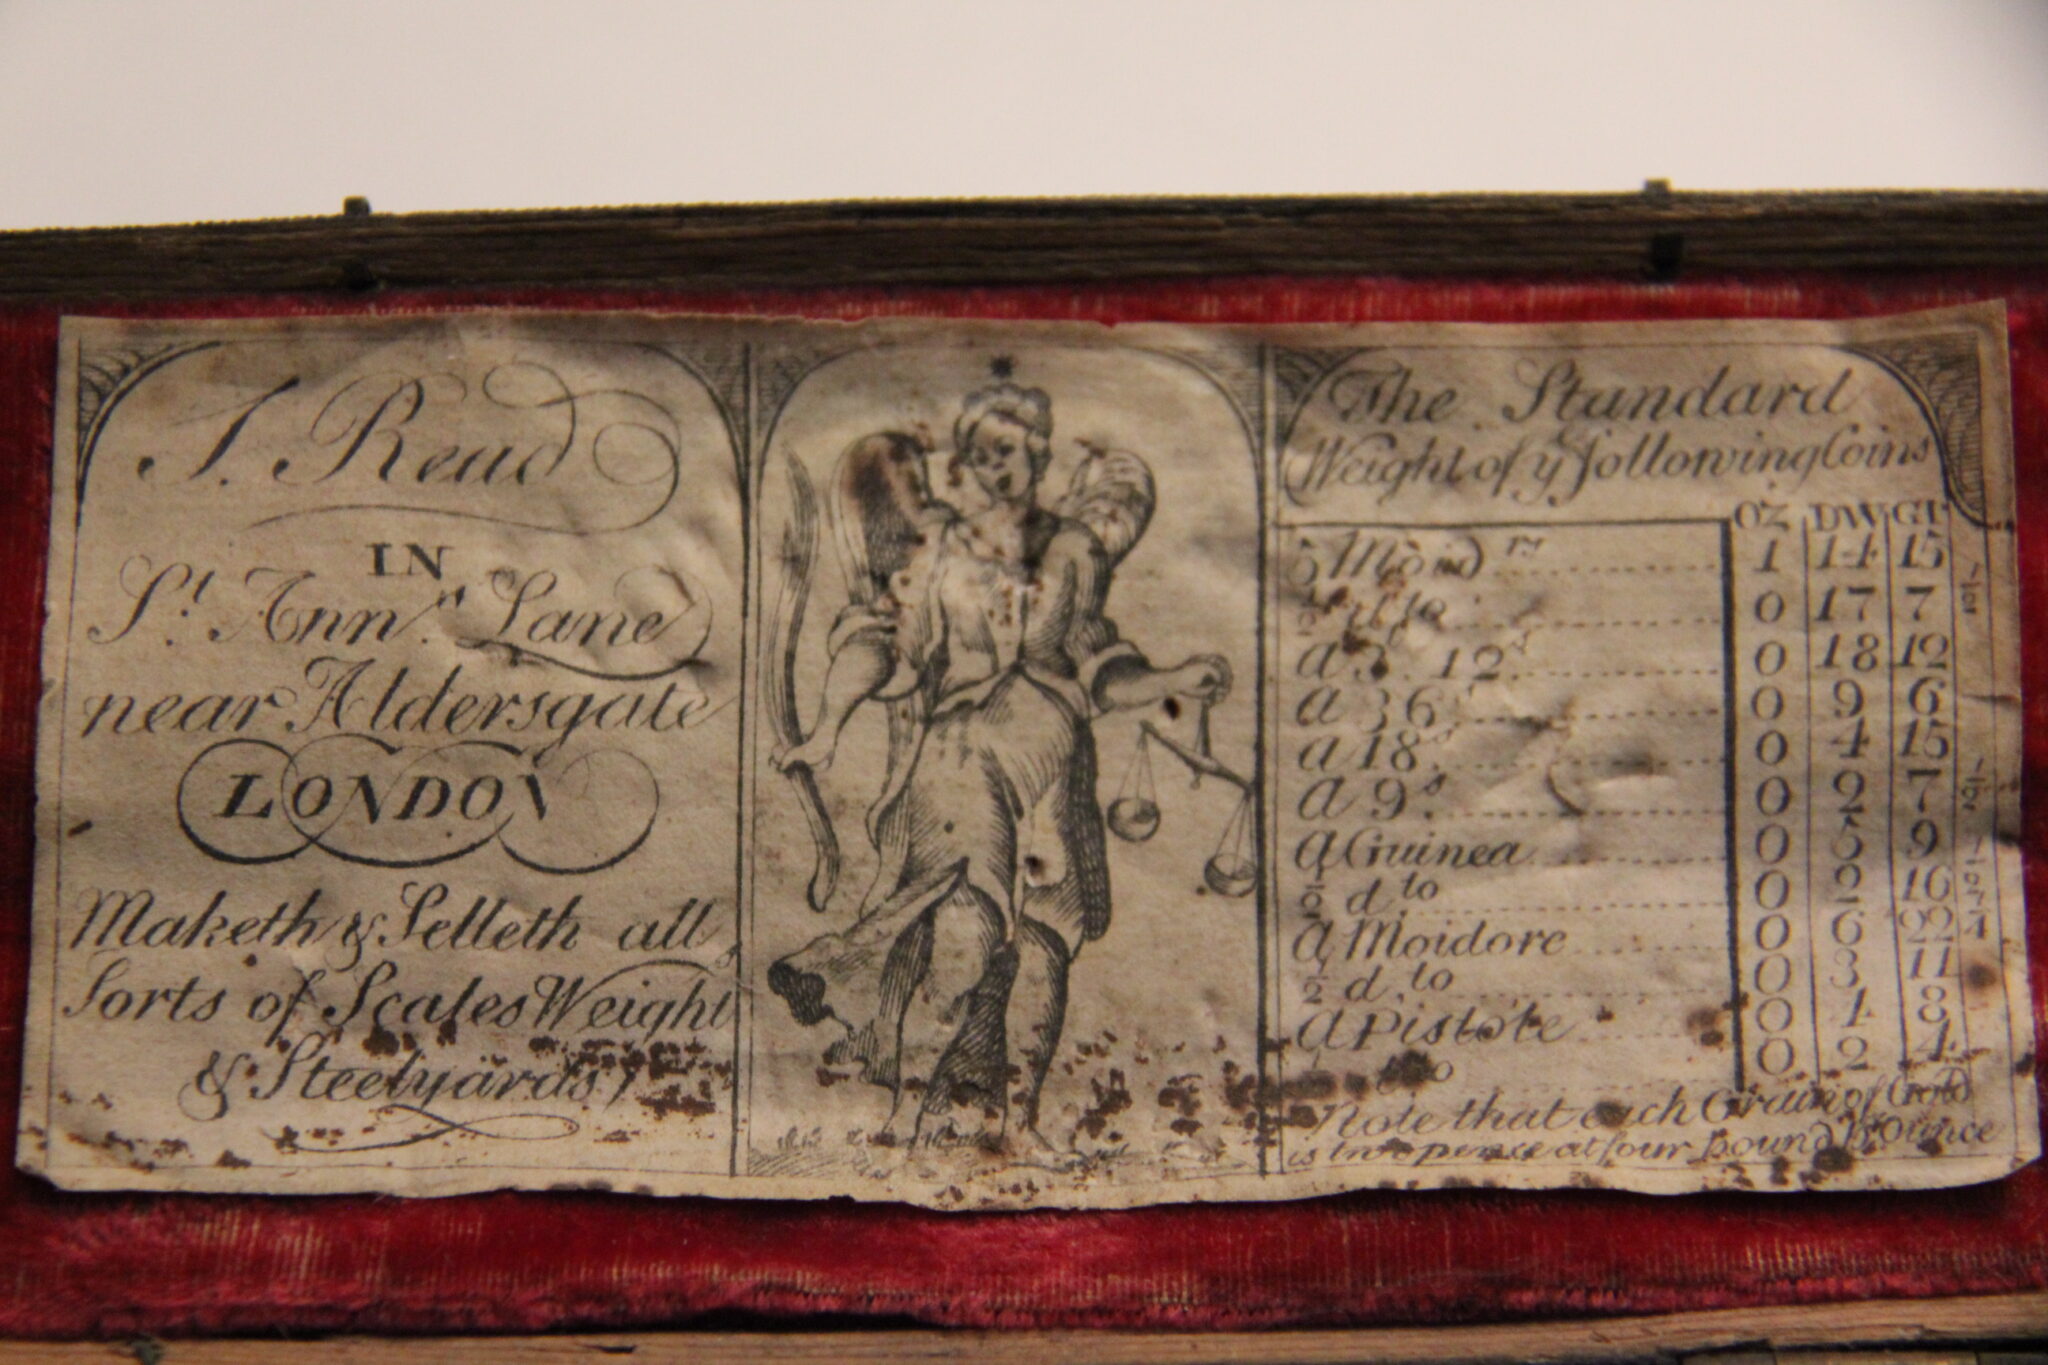 J. Read
IN
St. Ann's Lane
near Aldersgate
LONDON
Maketh & Selleth all
Sorts of Scales Weight
& Steelyards
The Standard
Weight of ye following Coins
OZ DW Gr
5 Moid rs 1 14 15
½ ditto 0 17 7
a 3£ 12s 0 18 12
a 36s 0 9 6
a 18s 0 4 15
a 9s 0 2 7
a Guinea 0 5 9
½ d to 0 2 16
a Moidore 0 6 22
½ d to 0 3 11
a Pistole 0 4 8
to 0 2 4
Note that each Grain of Gold
is two pence at four pound pr Ounce